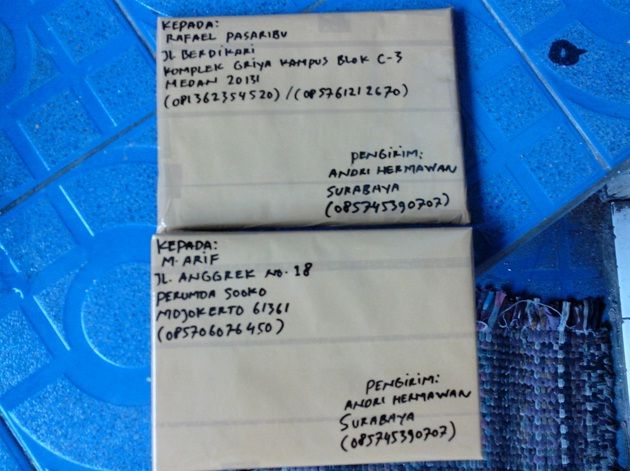 KEPADA:
RAFAEL PASARIBU
JL. BERDIKARI
KOMPLEK GRIYA KAMPUS BLOK C-3
MEDAN 20131
(081362354520) / (085761212670)
PENGIRIM:
ANDRI HERMAWAN
SURABAYA
(085745390707)
KEPADA:
M. ARIF
JL. ANGGREK NO. 18
PERUMDA SOOKO
MOJOKERTO 61361
(085706076450)
PENGIRIM:
ANDRI HERMAWAN
SURABAYA
(085745390707)